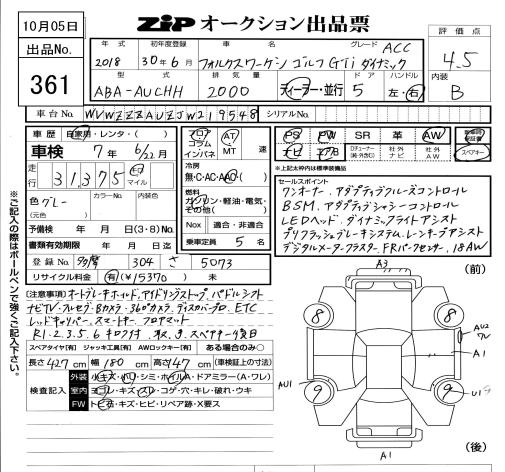 10月05日
ZIP オークション出品票
出品No.
361
年式 初年度登録 車名 グレード
2018 30年6月 フォルクスワーゲン ゴルフGTi ダイナミック ACC
型式 排気量 ドア ハンドル
ABA-AUCHH 2000 ディーラー・並行 5 左・右
評価点
4.5
内装
B
車台No. WVWZZZAUZJW219548 シリアルNo.
車歴 自家用・レンタ・( )
車検 7年 6/22月
走行 31,375 km マイル
色 グレー カラーNo. 内装色
(元色)
予備検 年 月 日 (3・8)No.
書類有効期限 年 月 日迄
登録No. 多摩 304 さ 5073
リサイクル料金 有(¥15370) 未
フロア コラム インパネ AT MT 速
冷房
無・C・AC・AAC・( )
燃料
ガソリン・軽油・電気・その他( )
Nox 適合・非適合
乗車定員 5 名
PS PW SR 革 AW
ナビ TV Dチューナー(純・外含む) 社外ナビ 社外AW
新車時保証書
スペアキー
*上記太枠内は標準装備品
セールスポイント
ワンオーナー、アダプティブクルーズコントロール
BSM、アダプティブシャシーコントロール
LEDヘッド、ダイナミックライトアシスト
プリクラッシュブレーキシステム、レーンキープアシスト
デジタルメータークラスター FRパークセンサー、18AW
(注意事項) オートブレーキホールド、アイドリングストップ、パドルシフト
ナビTV・フルセグ・Bカメラ・360°カメラ、ディスカバープロ、ETC
レッドキャリパー、スマートキー、フロアマット
R1.2.3.5.6キロク付 取、スペアキー
スペアタイヤ[有] ジャッキ工具[有] AWロックキー[有] ある場合のみ○
長さ427cm 幅180cm 高さ147cm (車検証上の寸法)
検査記入
外装 小キズ・凹・シミ・ホイルA・ドアミラー(A・ワレ)
室内 ヨゴレ・キズ・スレ・コゲ・穴・キレ・破れ・ウキ
FW トビ石・キズ・ヒビ・リペア跡・X要ス
※ご記入の際はボールペンで強くご記入下さい。
(前)
A3
8
8
AU2
ワレ
A1
AU1
9
9
U1
A1
(後)